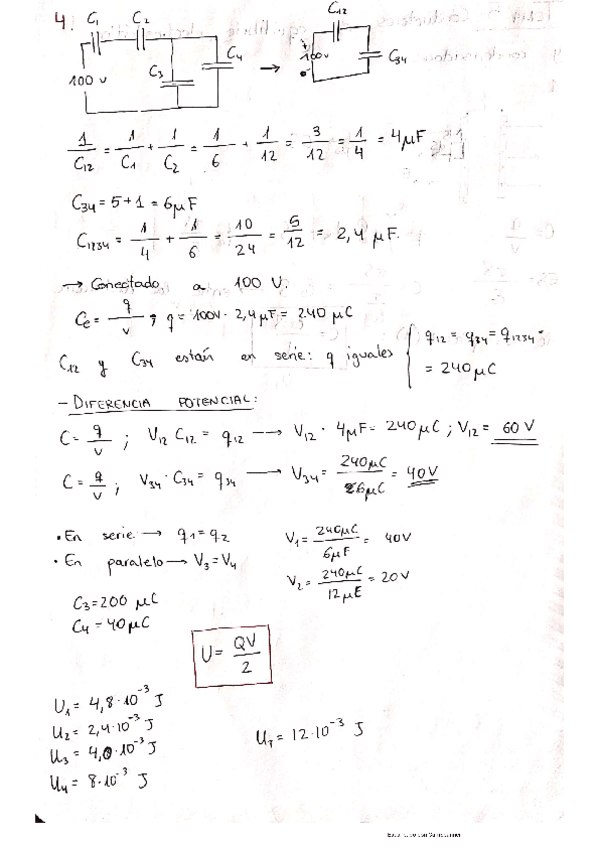 4.
C₁ C₂
C₃ C₄
100 v
→
C₁₂
100v
C₃₄
1/C₁₂ = 1/C₁ + 1/C₂ = 1/6 + 1/12 = 3/12 = 1/4 = 4μF
C₃₄ = 5+1 = 6μF
C₁₂₃₄ = 1/4 + 1/6 = 10/24 = 5/12 = 2,4 μF.
→ Conectado a 100 V.
Ce = q/v ; q = 100v · 2,4μF = 240 μC
C₁₂ y C₃₄ están en serie: q iguales { q₁₂ = q₃₄ = q₁₂₃₄ =
= 240μC
- DIFERENCIA POTENCIAL:
C = q/v ; V₁₂ C₁₂ = q₁₂ → V₁₂ · 4μF = 240μC ; V₁₂ = 60 V
C = q/v ; V₃₄ · C₃₄ = q₃₄ → V₃₄ = 240μC/6μC = 40V
• En serie → q₁ = q₂
• En paralelo → V₃ = V₄
V₁ = 240μC/6μF = 40V
V₂ = 240μC/12μF = 20V
C₃ = 200 μC
C₄ = 40μC
U = QV/2
U₁ = 4,8·10⁻³ J
U₂ = 2,4·10⁻³ J
U₃ = 4,0·10⁻³ J
U₄ = 8·10⁻³ J
U_T = 12·10⁻³ J